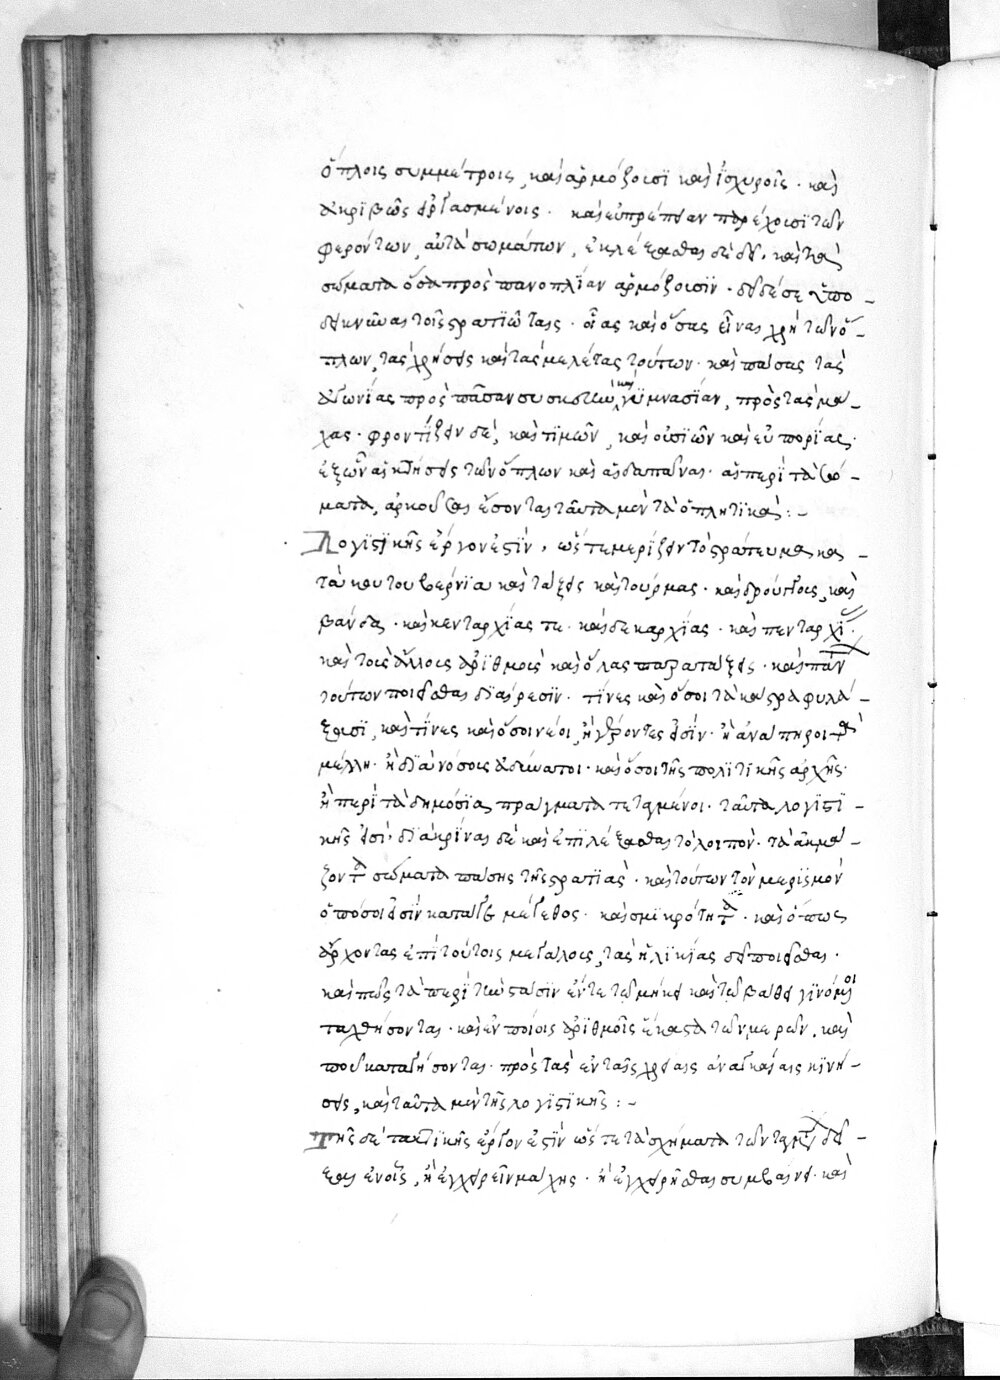 ὅπλοις συμμέτροις, καὶ ἁρμόζουσι καὶ ἰσχυροῖς· καὶ
ἀκριβῶς εἰργασμένοις· καὶ εὐπρέπειαν παρέχουσι τῶν
φερόντων αὐτὰ σωμάτων, ἐκλέξασθαι σε δεῖ· καὶ τὰ
σώματα ὅσα πρὸς πανοπλίαν ἁρμόζουσιν· δεῖ δέ σε ὑπο-
δεικνύναι τοῖς στρατιώταις· οἵας καὶ ὅσας εἶναι χρὴ τῶν ὅ-
πλων, τὰς χρήσεις καὶ τὰς μελέτας τούτων· καὶ πάσας τὰς
ἀγωνίας πρὸς πᾶσαν συσκευὴν καὶ γυμνασίαν, πρὸς τὰς μά-
χας· φροντίζειν δὲ, καὶ τιμῶν, καὶ οὐσιῶν καὶ εὐπορίας·
ἐξ ὧν αἱ κτήσεις τῶν ὅπλων καὶ αἱ δαπάναι· αἱ περὶ τὰ σώ-
ματα, ἀρκοῦσαι ἔσονται ταῦτα μὲν τὰ ὁπλητικά :-
Λογιστικῆς ἔργον ἐστὶν, ὥστε μερίζειν τὸ στράτευμα κα-
τὰ κουτουβέρνια καὶ τάξεις καὶ τούρμας· καὶ δρούγγους, καὶ
βάνδα· καὶ κενταρχίας τε· καὶ δεκαρχίας· καὶ πενταρχί
καὶ τοῖς ἄλλοις ἀριθμοῖς καὶ ὅλας παρατάξεις· καὶ πᾶν
τούτων ποιεῖσθαι διαίρεσιν· τίνες καὶ ὅσοι τὰ κάστρα φυλά-
ξουσι, καὶ τίνες καὶ ὅσοι νέοι, ἢ γέροντες εἰσίν· ἢ ἀνάπηροι τὰ
μέλλη· ἢ διὰ νόσους ἀδύνατοι· καὶ ὅσοι τῆς πολιτικῆς ἀρχῆς·
ἢ περὶ τὰ δημόσια πράγματα τεταγμένοι· ταῦτα λογιστι-
κῆς εἰσί· διακρῖναι δὲ καὶ ἐπιλέξασθαι τὸ λοιπόν· τὰ ἀκμά-
ζοντα σώματα πάσης τῆς στρατιᾶς· καὶ τούτων τὸν μερισμὸν
ὁπόσοι εἰσὶν κατά τε μέγεθος· καὶ σμικρότητα· καὶ ὅπως
ἄρχοντας ἐπὶ τούτοις μεγάλοις, τὰς ἡλικίας δεῖ ποιεῖσθαι·
καὶ πῶς τὰ περὶ τὴν στάσιν ἔν τε τῷ μήκει καὶ τῷ βάθει γινόμενοι
ταχθήσονται· καὶ ἐν ποίοις ἀριθμοῖς ἕκαστα τῶν μερῶν, καὶ
ποῦ καταγήσονται· πρὸς τὰς ἐν ταῖς χρείαις ἀναγκαίαις κινή-
σεις, καὶ ταῦτα μὲν τῆς λογιστικῆς :-
Τῆς δὲ τακτικῆς ἔργον ἐστὶν ὥστε τὰ σχήματα τῶν δεῖ-
ξαι ἐν οἷς, ἢ ἐγχειρεῖν μάχης· ἢ ἐγχειρῆσθαι συμβαίνει· καὶ